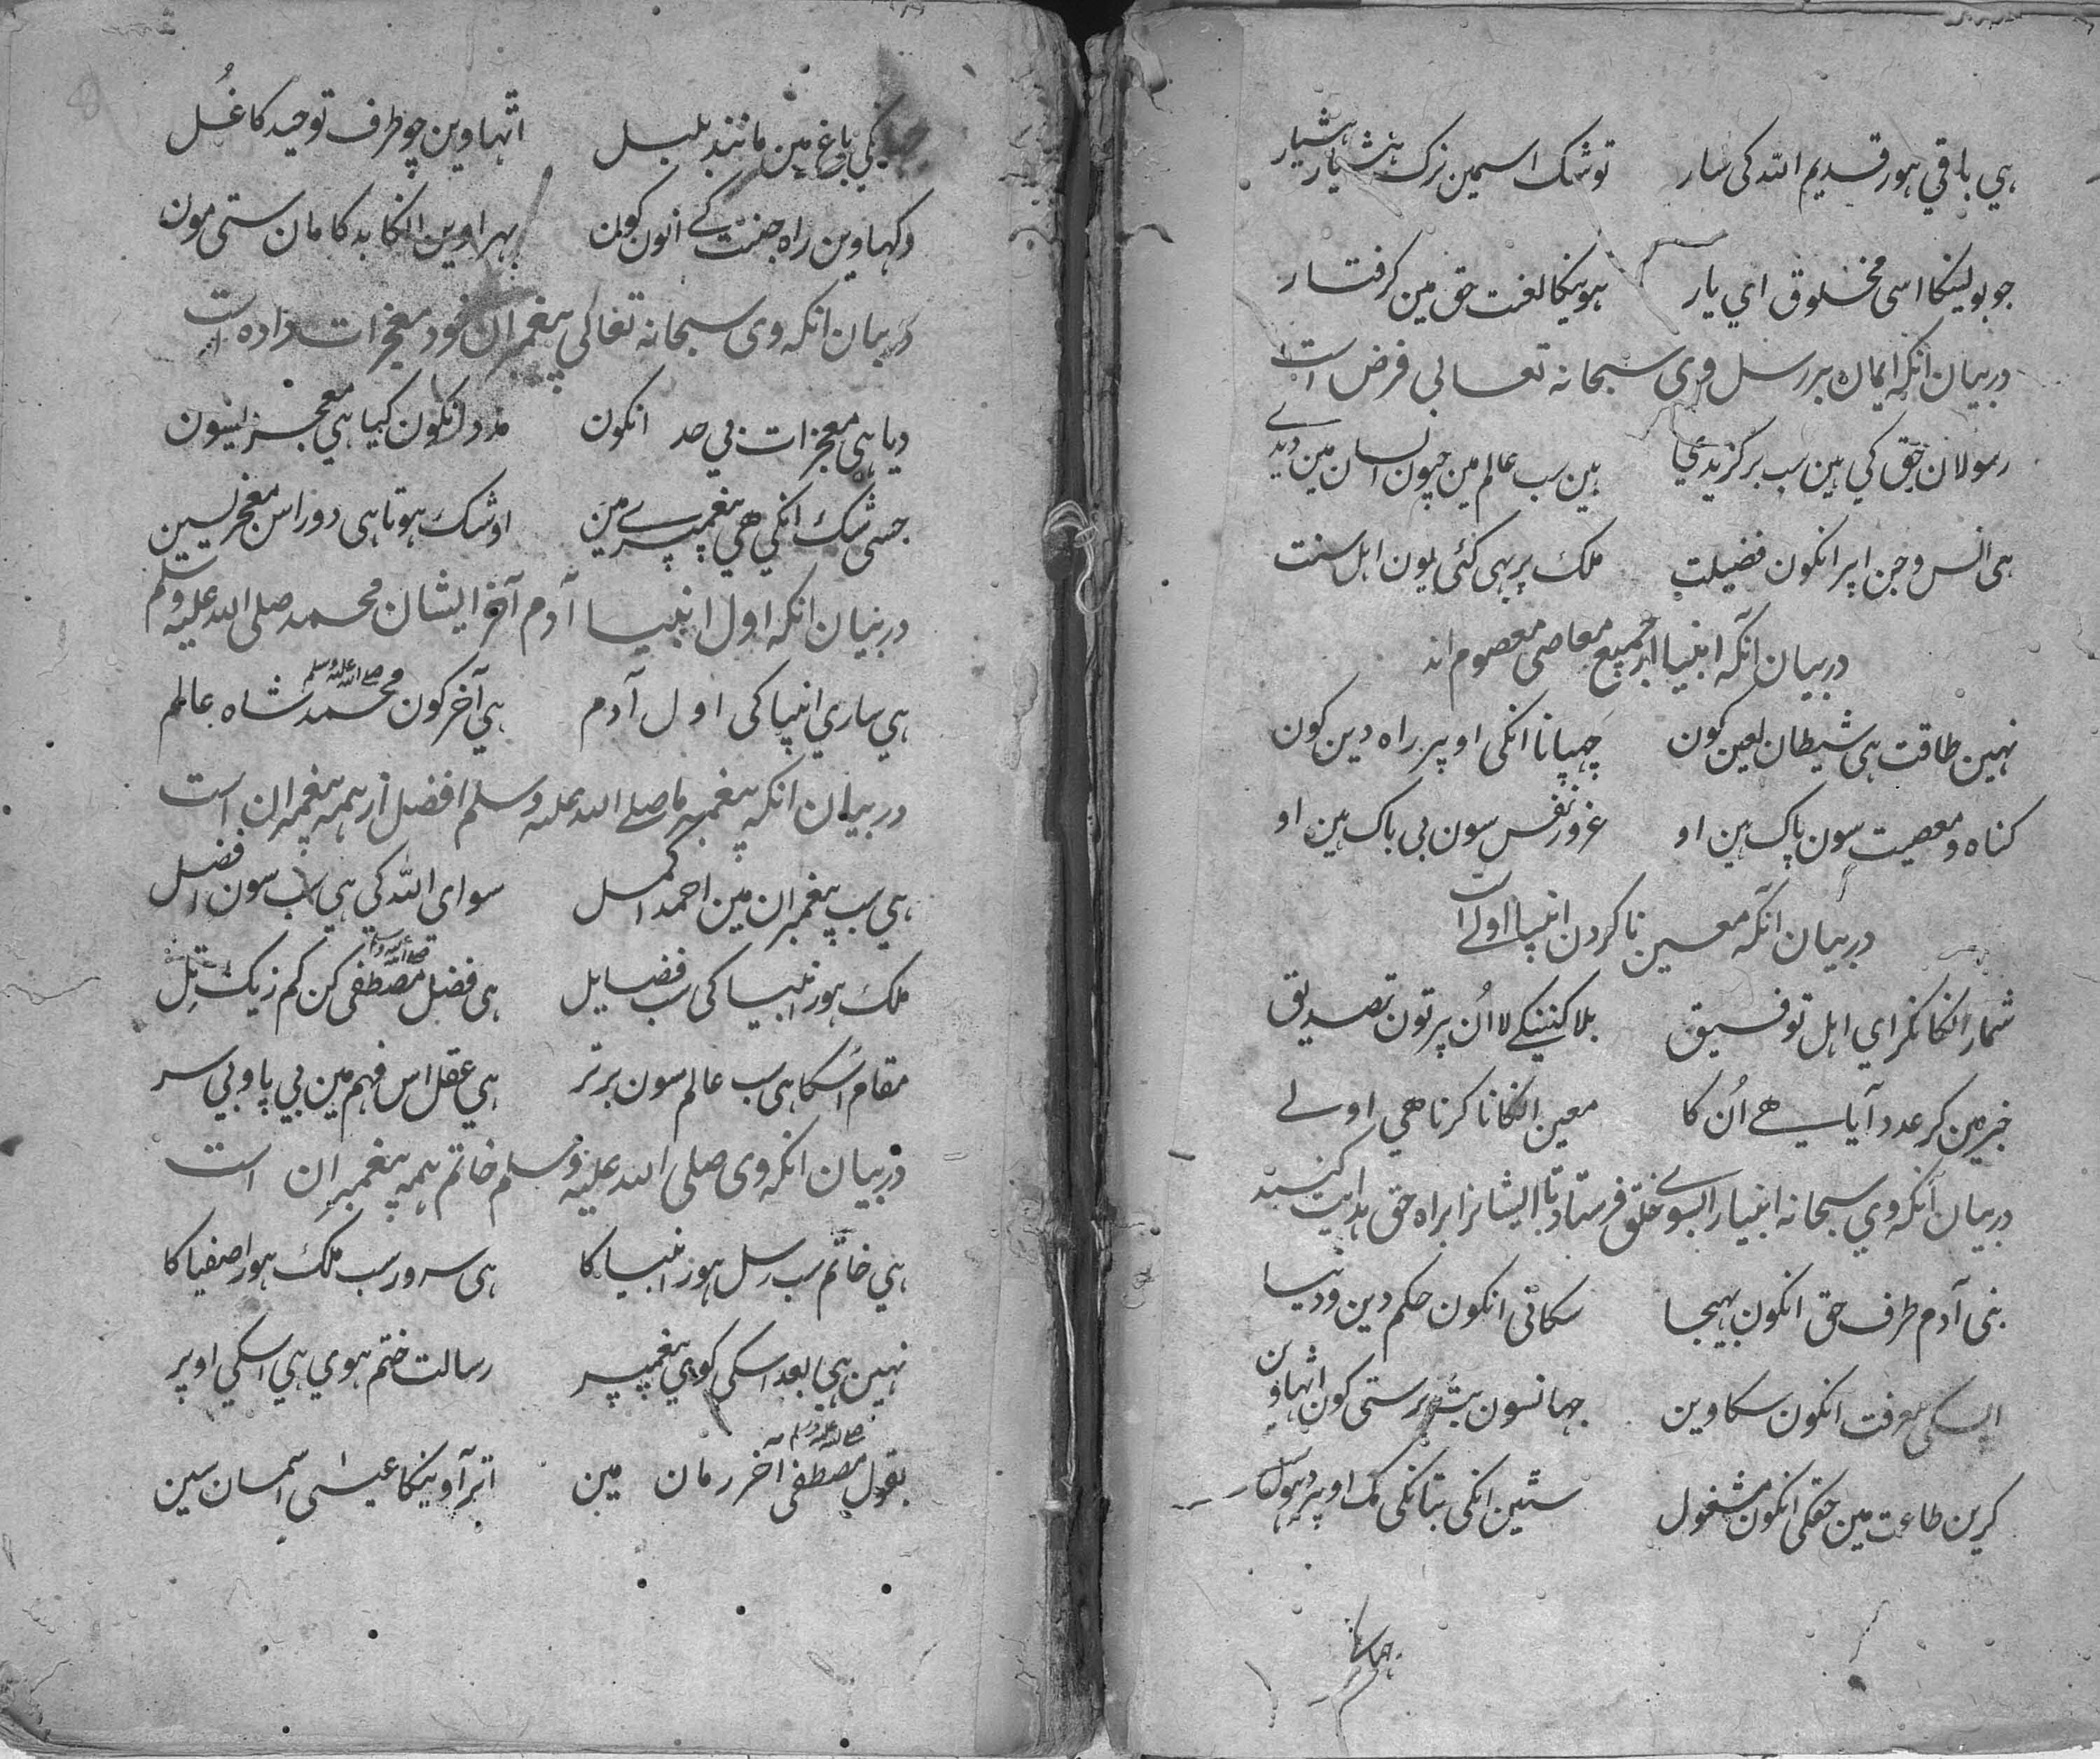 هي باقي هور قديم الله کی سار توشک اسمین نرک هشیار هشیار
جو بولینکا اسی مخلوق اي یار هوینکا لعنت حق مین کرفتار
در بیان انکه ایمان بر رسل وی سبحانه تعالی فرض است
رسولان حق کي هین سب برکزیدے هین سب عالم مین جیون انسان مین دیدے
هی انس و جن اپر انکون فضیلت ملک پر بهی کئی یون اهل سنت
در بیان آنکه انبیا از جمیع معاصی معصوم اند
نهین طاقت هی شیطان لعین کون چهپانا انکی اوپر راه دین کون
کناه و معصیت سون پاک هین او غرور نفس سون بی باک هین او
در بیان آنکه معین نا کردن انبیا اولے است
شمار انکا نکر اي اهل توفیق بلا کنتیکے لا اُن پر تون تصدیق
خبر مین کر عدد آیا هے اُن کا معین انکا نا کرنا هي اولے
در بیان آنکه وي سبحانه انبیا را بسوے خلق فرستاد تا ایشانرا براه حق هدایت کنند
بنی آدم طرف حق انکون بهیجا سکاتی انکون حکم دین و دنیا
اپسکی معرفت انکون سکاوین جهانسون بت پرستی کون اتهاوین
کرین طاعت مین حقکی انکون مشغول ستین انکی بتانکی مک اوپر دهول
جهانکی
جهانکی باغ مین مانند بلبل اتهاوین چو طرف توحید کا غُل
دکهاوین راه جنت کے انون کون پهراوین انکا بد کامان ستی مون
در بیان انکه وی سبحانه تعالی پیغمبران خود معجزات داده است
دیا هی معجزات بي حد انکون مدد انکون کیا هي معجزیسون
جسی شک انکي هي پیغمبرے مین او شک هوتا هی دور اس معجزیسین
در بیان انکه اول انبیا آدم آخر ایشان محمد صلی الله علیه وسلم
هي ساري انبیا کی اول آدم هي آخر کون محمد صلی الله علیه وسلم شاه عالم
در بیان انکه پیغمبر ما صلی الله علیه وسلم افضل از همه پیغمبران است
هي سب پیغمبران مین احمد اکمل سواي الله کي هي سب سون افضل
ملک هور انبیا کی سب فضایل هی فضل مصطفی کن کم ز یک تِل
مقام اُسکا هی سب عالم سون برتر هي عقل اس فهم مین بي پا و بي سر
در بیان انکه وی صلی الله علیه وسلم خاتم همه پیغمبران است
هي خاتم سب رسل هور انبیا کا هی سرور سب ملک هور اصفیا کا
نهین هي بعد اسکی کوي پیغمبر رسالت ختم هوي هي اسکي اوپر
بقول مصطفی صلی الله علیه وسلم آخر زمان مین اتر آوینکا عیسی اسمان سین